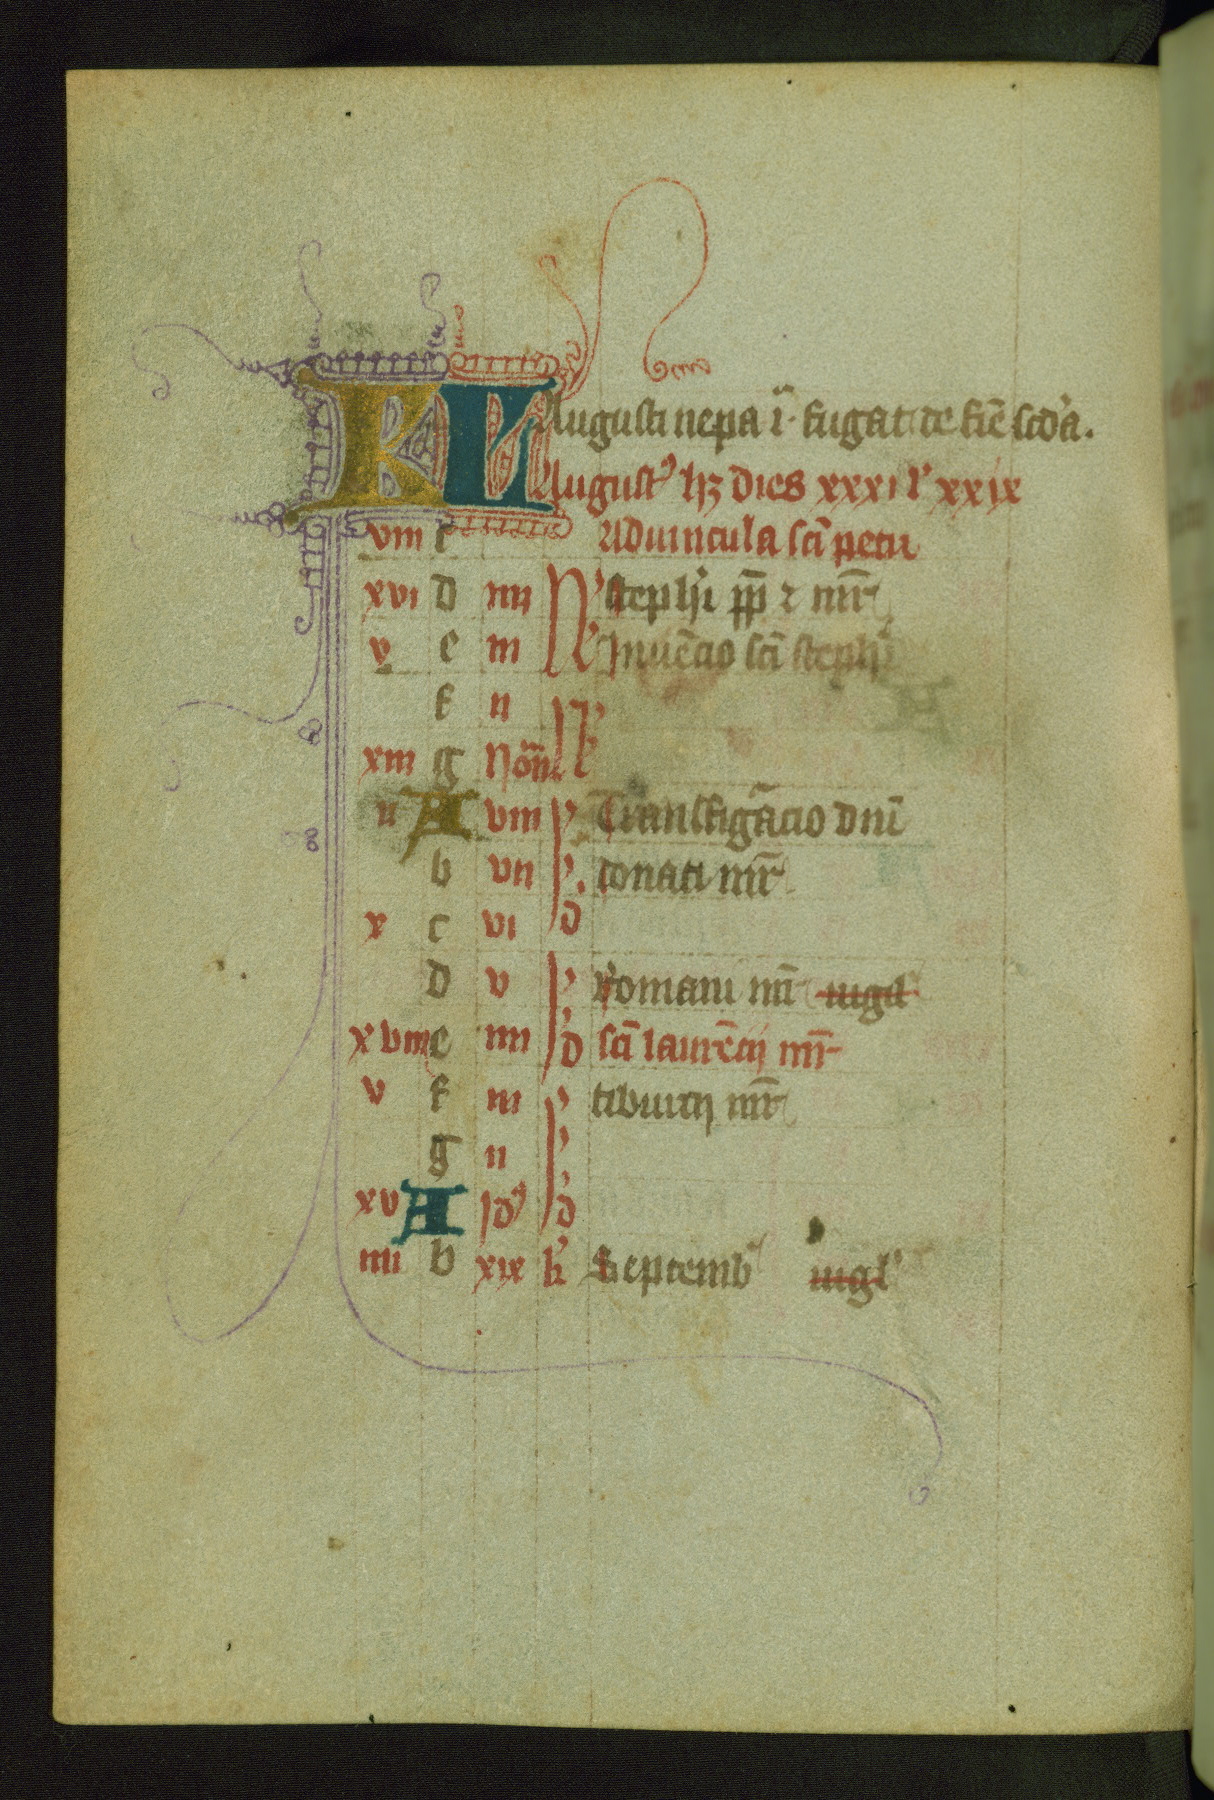 KL Augusti nepa i᷑. fugat de fiē scd'a.
August' hꝫ dies xxxi l' xxix
viii c Aduincula sc̄i petri
xvi d iiii N' steph'i pp̄ ⁊ mr̄
v e iii N' Inuēcio sc̄i steph'i
f ii N'
xiii g Non̄
ii A viii Id' Transfigᵃcio dn̄i
b vii Id' donati mr̄
x c vi Id'
d v Id' Romani mr̄ uigil'
xviii e iiii Id' sc̄i laurēcij mr̄
v f iii Id' tiburcij mr̄
g ii Id'
xv A Id'
iiii b xix kl' Septemb' uigl'